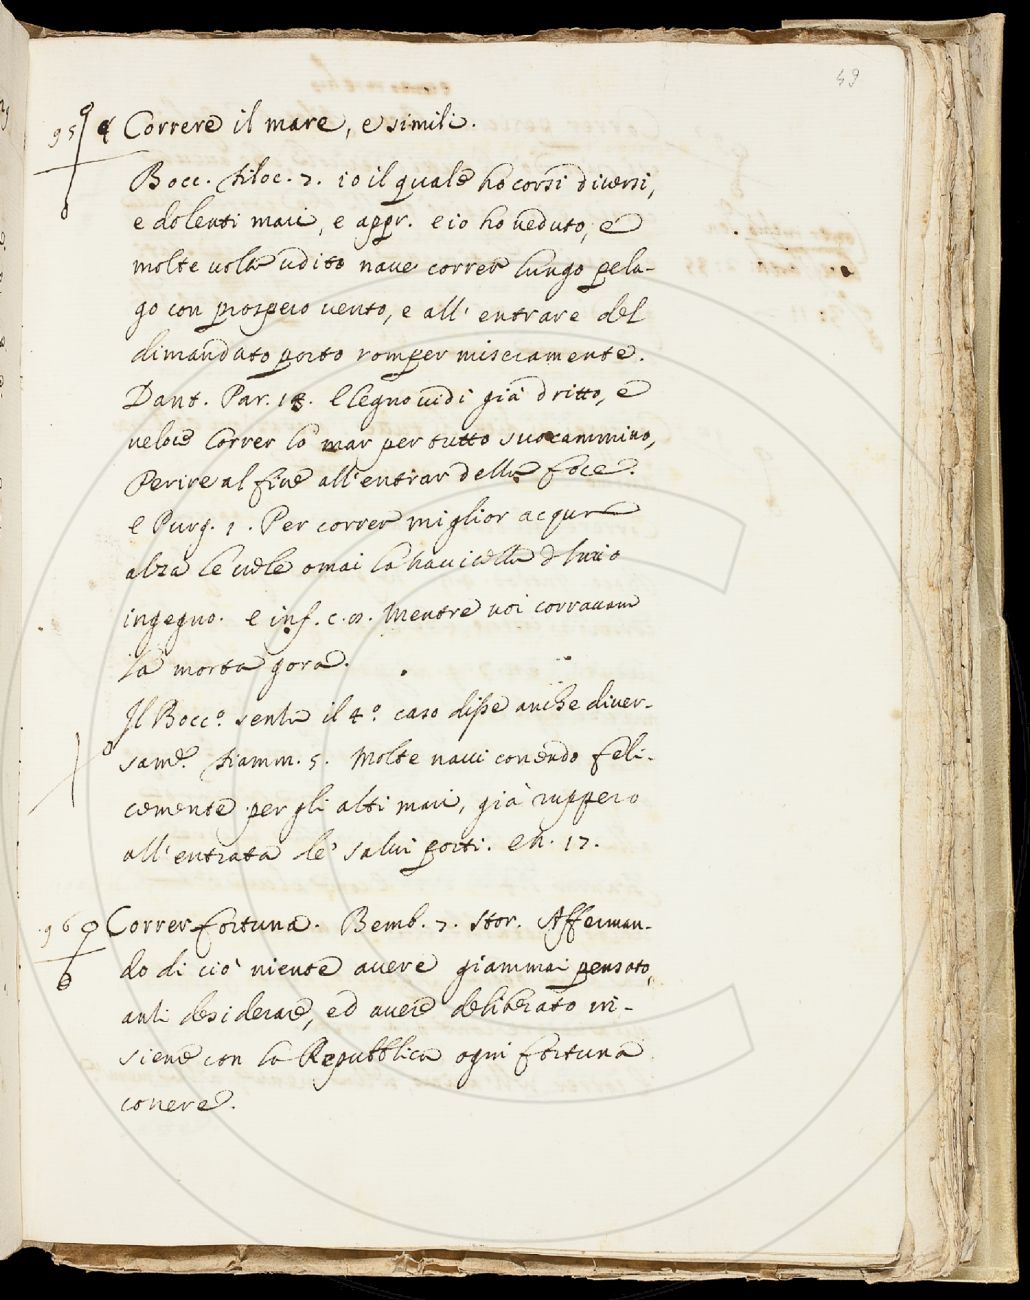 49
95 4 Correre il mare, e simili.
Bocc. filoc. 7. io il quale ho corsi diversi,
e dolenti mari, e appr. e io ho veduto, e
molte volte udito nave correr lungo pela-
go con prospero vento, e all' entrare del
dimandato porto romper miseramente.
Dant. Par. 13. E legno vidi già dritto, e
veloce Correr lo mar per tutto suo cammino,
Perire al fine all'entrar della foce.
e Purg. 1. Per correr miglior acqua
alza le vele omai la navicella del mio
ingegno. e inf. c. 8. Mentre noi corravam
la morta gora.
Il Bocc.º sente il 4.º caso disse anche diver-
same. fiamm. 5. Molte navi correndo feli-
cemente per gli alti mari, già ruppero
all'entrata de' salvi porti. eh. 17.
96 Correr fortuna. Bemb. 7. stor. Afferman-
do di ciò niente avere giammai pensato,
anzi desiderare, ed avere deliberato in-
sieme con la Repubblica ogni fortuna
correre.